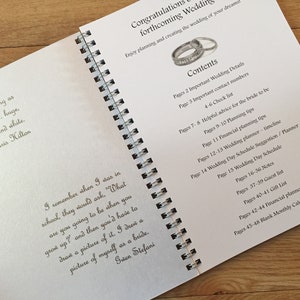 ng as
huge
and white.
ris Hilton
I remember when I was in
school, they would ask, "What
are you going to be when you
grow up?" and then you'd have to
draw a picture of it. I drew a
picture of myself as a bride.
Gwen Stefani
Congratulations
forthcoming Wedding
Enjoy planning and creating the wedding of your dreams!
Contents
Pages 2 Important Wedding Details
Pages 3 Important contact numbers
4-6 Check list
Pages 7- 8 Helpful advice for the bride to be
Pages 9-10 Planning tips
Pages 11 Financial planning tips
Pages 12-13 Wedding planner - timeline
Page 14 Wedding Day Schedule Suggestion / Plannin
Page 15 Wedding Day Schedule
Pages 16-36 Notes
Pages 37-39 Guest list
Pages 40-41 Gift List
Pages 42-44 Financial planne
Pages 45-48 Blank Monthly Cale